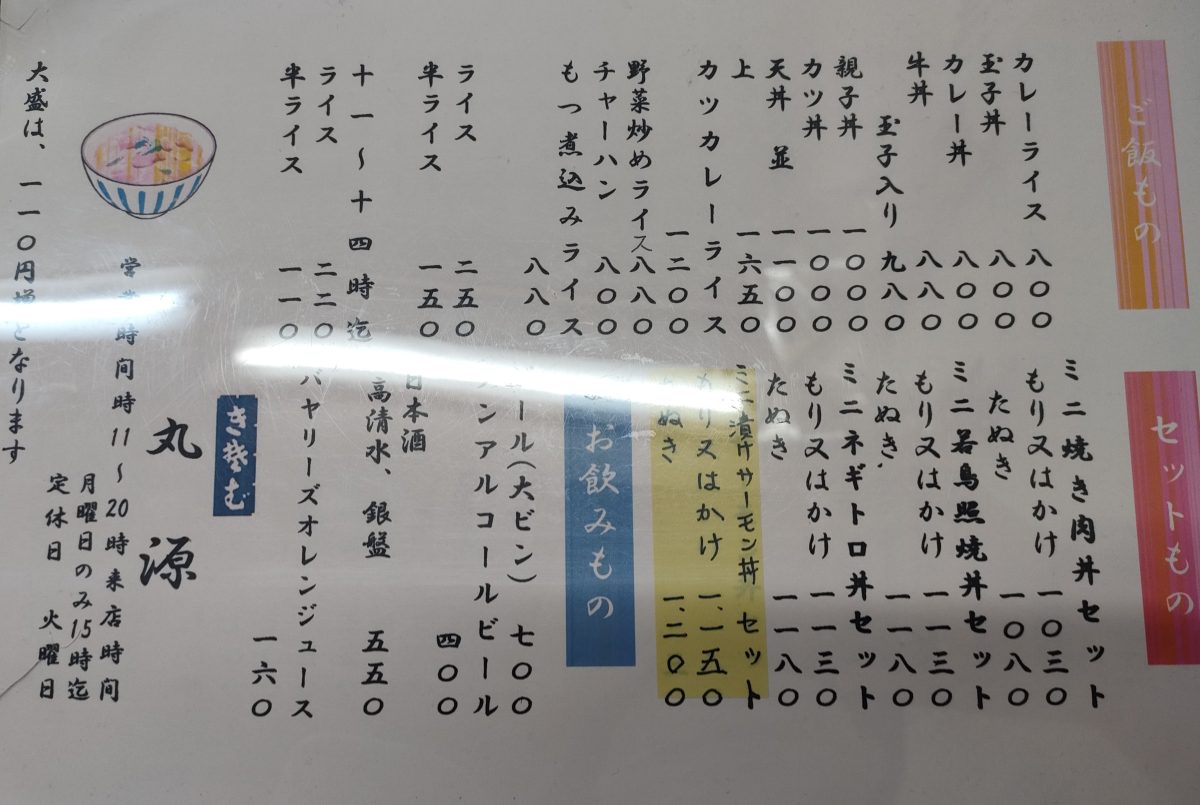 ご飯もの
カレーライス 八〇〇
玉子丼 八〇〇
カレー丼 八〇〇
牛丼 八八〇
玉子入り 九八〇
親子丼 一〇〇〇
カツ丼 一〇〇〇
天丼 並 一一〇〇
上 一六五〇
カツカレーライス
一二〇〇
野菜炒めライス 八八〇
チャーハン 八〇〇
もつ煮込みライス
八八〇
ライス 二五〇
半ライス 一五〇
十一～十四時迄
ライス 二二〇
半ライス 一一〇
セットもの
ミニ焼き肉丼セット
もり又はかけ 一〇三〇
たぬき 一〇八〇
ミニ若鳥照焼丼セット
もり又はかけ 一一三〇
たぬき 一一八〇
ミニネギトロ丼セット
もり又はかけ 一一三〇
たぬき 一一八〇
ミニ漬けサーモン丼セット
もり又はかけ 一、一五〇
たぬき 一、二〇〇
お飲みもの
ビール(大ビン) 七〇〇
ノンアルコールビール
四〇〇
日本酒
高清水、銀盤 五五〇
バヤリーズオレンジュース
一六〇
きそば
丸源
営業時間時11～20時来店時間
月曜日のみ15時迄
定休日 火曜日
大盛は、一一〇円増となります